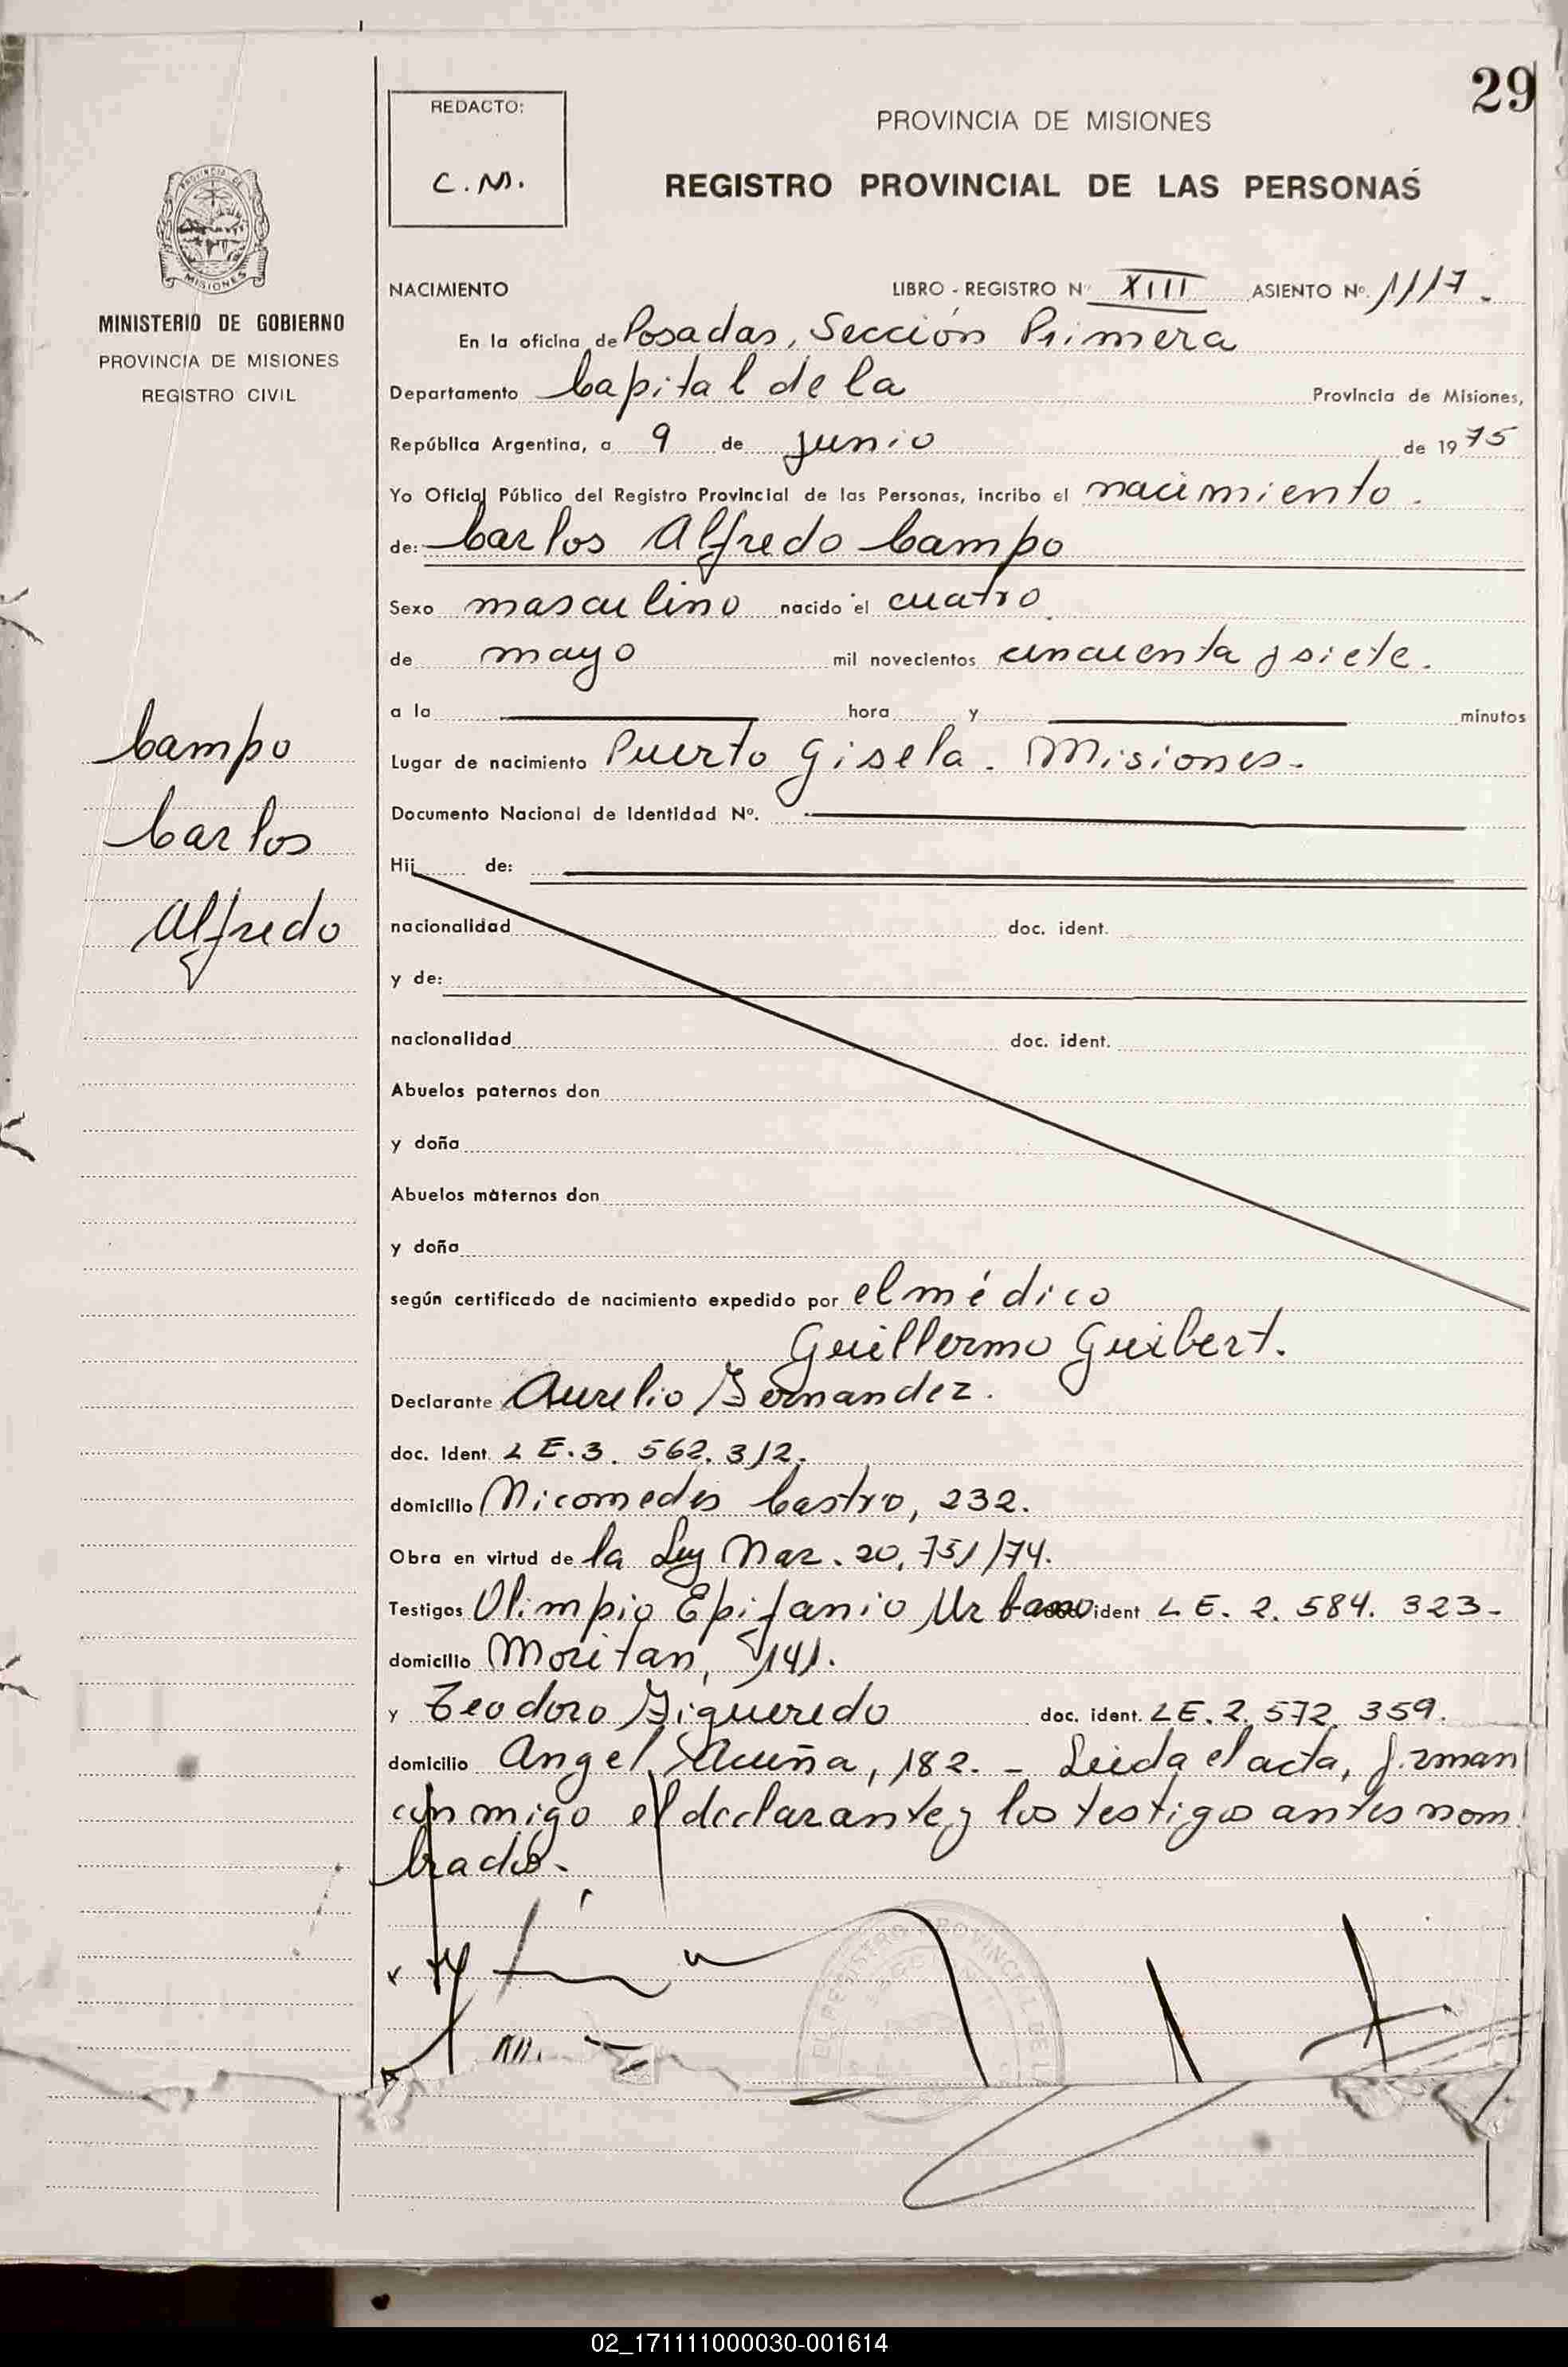 29
REDACTO:
C.M.
PROVINCIA DE MISIONES
REGISTRO PROVINCIAL DE LAS PERSONAS
PROVINCIA DE
MISIONES
MINISTERIO DE GOBIERNO
PROVINCIA DE MISIONES
REGISTRO CIVIL
Campo
Carlos
Alfredo
NACIMIENTO LIBRO - REGISTRO Nº XIII ASIENTO Nº. 1117.
En la oficina de Posadas, Sección Primera
Departamento Capital de la Provincia de Misiones,
República Argentina, a 9 de junio de 1975
Yo Oficial Público del Registro Provincial de las Personas, incribo el nacimiento.
de: Carlos Alfredo Campo
Sexo masculino nacido el cuatro
de mayo mil novecientos cincuenta y siete.
a la hora y minutos
Lugar de nacimiento Puerto Gisela. Misiones.
Documento Nacional de Identidad Nº.
Hij de:
nacionalidad doc. ident.
y de:
nacionalidad doc. ident.
Abuelos paternos don
y doña
Abuelos maternos don
y doña
según certificado de nacimiento expedido por el médico
Guillermo Guibert.
Declarante Aurelio Fernandez.
doc. Ident. L E. 3. 562. 312.
domicilio Nicomedes Castro, 232.
Obra en virtud de la Ley Nac. 20.751/74.
Testigos Olimpio Epifanio Urbano ident L E. 2. 584. 323-
domicilio Moritan, 141.
y Teodoro Figueredo doc. ident. L E. 2. 572. 359.
domicilio Angel Acuña, 182. - Leida el acta, firman
conmigo el declarante y los testigos antes nom
brados.
02_171111000030-001614